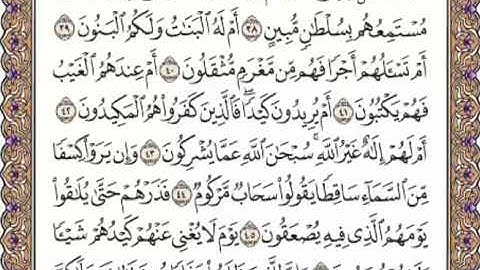 مُسْتَمِعُهُم بِسُلْطَٰنٍ مُّبِينٍ ٣٨ أَمْ لَهُ ٱلْبَنَٰتُ وَلَكُمُ ٱلْبَنُونَ ٣٩
أَمْ تَسْـَٔلُهُمْ أَجْرًا فَهُم مِّن مَّغْرَمٍ مُّثْقَلُونَ ٤٠ أَمْ عِندَهُمُ ٱلْغَيْبُ
فَهُمْ يَكْتُبُونَ ٤١ أَمْ يُرِيدُونَ كَيْدًا ۖ فَٱلَّذِينَ كَفَرُوا۟ هُمُ ٱلْمَكِيدُونَ ٤٢
أَمْ لَهُمْ إِلَٰهٌ غَيْرُ ٱللَّهِ ۚ سُبْحَٰنَ ٱللَّهِ عَمَّا يُشْرِكُونَ ٤٣ وَإِن يَرَوْا۟ كِسْفًا
مِّنَ ٱلسَّمَآءِ سَاقِطًا يَقُولُوا۟ سَحَابٌ مَّرْكُومٌ ٤٤ فَذَرْهُمْ حَتَّىٰ يُلَٰقُوا۟
يَوْمَهُمُ ٱلَّذِى فِيهِ يُصْعَقُونَ ٤٥ يَوْمَ لَا يُغْنِى عَنْهُمْ كَيْدُهُمْ شَيْـًٔا